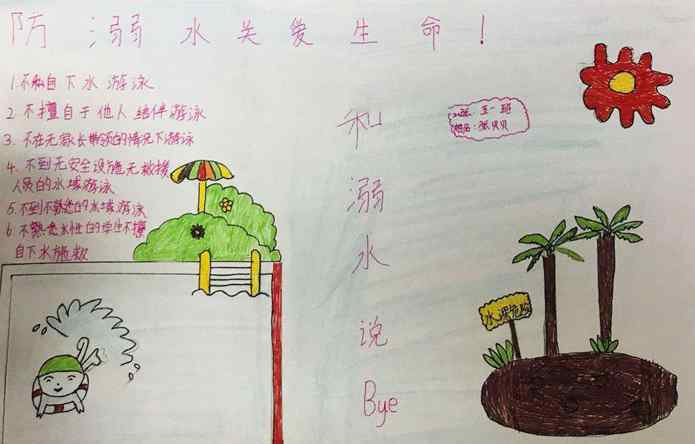 防溺水关爱生命!
1.不私自下水游泳
2 不擅自于他人结伴游泳
3. 不在无家长带领的情况下游泳
4. 不到无安全设施无救援
人员的水域游泳
5.不到不熟悉的水域游泳
6.不熟悉水性的学生不擅
自下水施救
和
溺
水
说
Bye
班级: 五一班
姓名:张贝贝
水深危险